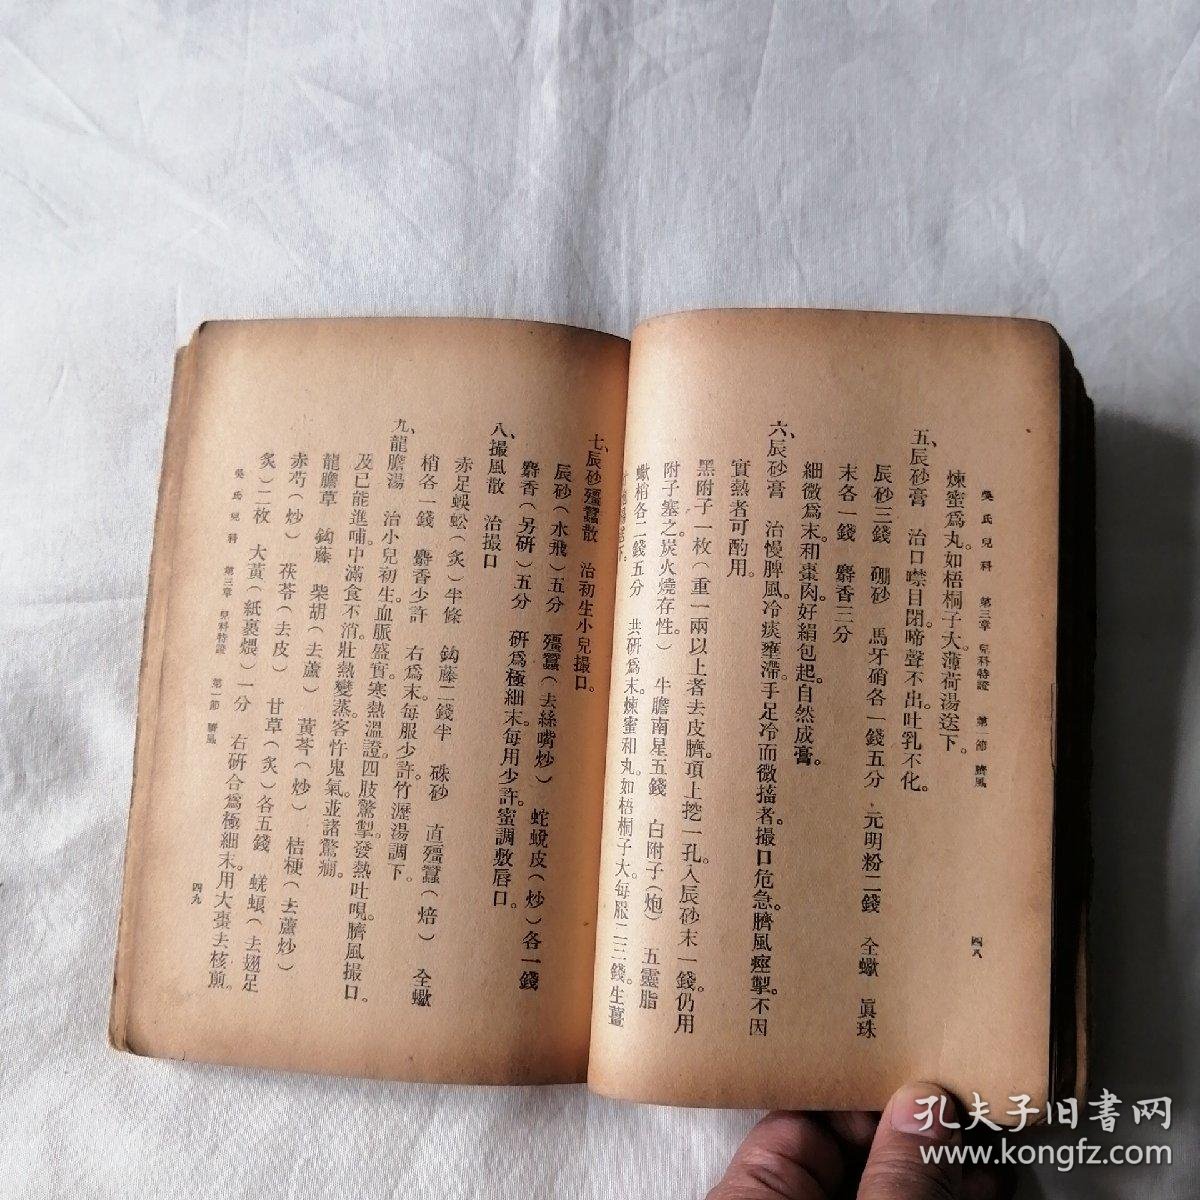 吳氏兒科　第三章　兒科特證　第一節　臍風　四八
煉蜜爲丸。如梧桐子大。薄荷湯送下。
五、辰砂膏　治口噤目閉啼聲不出吐乳不化。
辰砂三錢　硼砂　馬牙硝各一錢五分　元明粉二錢　全蠍　眞珠
末各一錢　麝香三分
細微爲末。和棗肉好絹包起。自然成膏。
六、辰砂膏　治慢脾風。冷痰壅滯。手足冷而微搐者。撮口危急。臍風瘂掣。不因
實熱者可酌用。
黑附子一枚（重一兩以上者去皮臍。頂上挖一孔。入辰砂末一錢。仍用
附子塞之。炭火燒存性。）　牛膽南星五錢　白附子（炮）　五靈脂
蠍梢各二錢五分　共研爲末。煉蜜和丸。如梧桐子大。每服二三錢。生薑
七、辰砂殭蠶散　治初生小兒撮口。
辰砂（水飛）五分　殭蠶（去絲嘴炒）　蛇蛻皮（炒）各一錢
麝香（另研）五分　研爲極細末。每用少許。蜜調敷唇口。
八、撮風散　治撮口
赤足蜈蚣（炙）半條　鈎藤二錢半　硃砂　直殭蠶（焙）　全蠍
梢各一錢　麝香少許　右爲末。每服少許。竹瀝湯調下。
九、龍膽湯　治小兒初生血脈盛實。寒熱溫證。四肢驚掣。發熱吐哯。臍風撮口。
及已能進哺。中滿食不消。壯熱變蒸。客忤鬼氣。並諸驚癇。
龍膽草　鈎藤　柴胡（去蘆）　黃芩（炒）　桔梗（去蘆炒）
赤芍（炒）　茯苓（去皮）　甘草（炙）各五錢　蜣蜋（去翅足
炙）二枚　大黃（紙裹煨）一分　右研合爲極細末。用大棗去核煎。
吳氏兒科　第三章　兒科特證　第一節　臍風　四九
孔夫子旧書网
www.kongfz.com